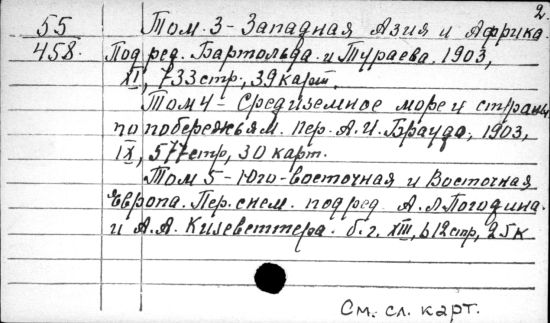 2.
55 Том. 3 - Западная Азия и Африка.
458. Под ред. Бартольда. и Тураева. 1903,
XI, 733 стр., 39 карт.
Том 4 - Средиземное море и страны
по побережьям. пер. А. И. Брауда, 1903,
IX, 577 стр, 30 карт.
Том 5 - Юго-восточная и Восточная
Европа. Пер. с нем. под ред. А. Л Погодина.
и А. А. Кизеветтера. б. г. XIII, 612 стр, 25 к
См. сл. карт.